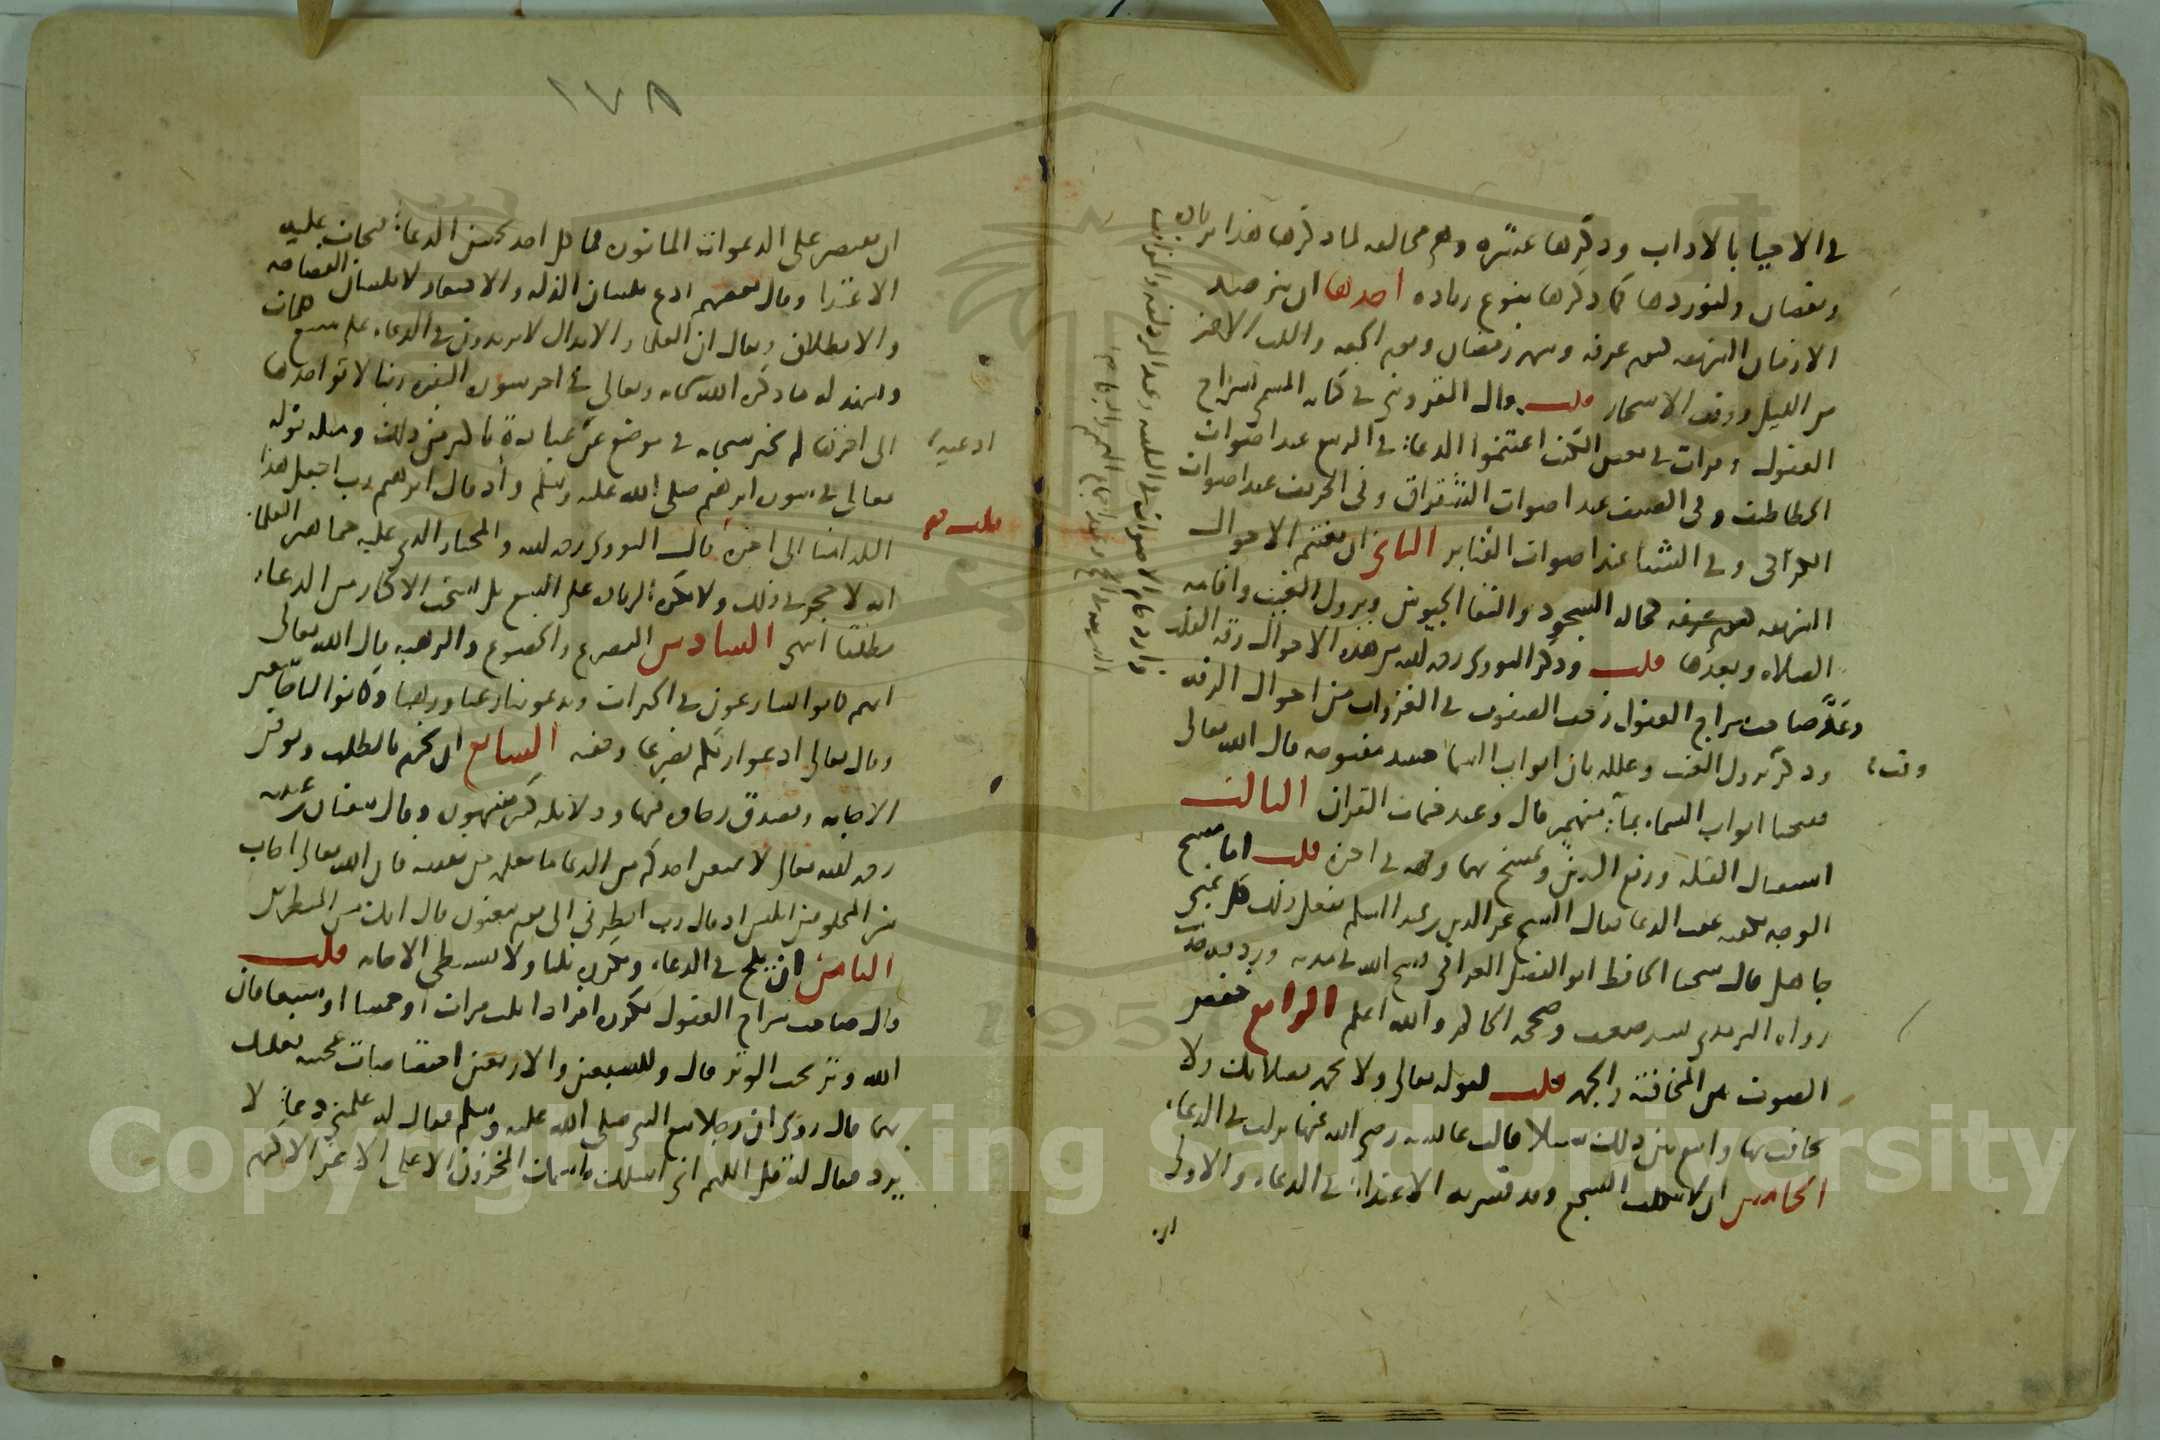 في الاحيا بالاداب وذكرها عشرة وهي مخالفه لما ذكرها هذا بزياده
ونقصان ولنوردها كما ذكرها بنوع زياده احدها ان يترصد
الازمان الشريفه كيوم عرفه وشهر رمضان ويوم الجمعه والثلث الاخير
من الليل ووقت الاسحار قلت وقال القزويني في كتابه المسمى سراج
العقول قرات في بعض الكتب اغتنموا الدعاء في الربيع عند اصوات
الخطاطيف وفي الصيف عند اصوات الشقراق وفي الخريف عند اصوات
الكراكي وفي الشتا عند اصوات القنابر الثاني ان يغتنم الاحوال
الشريفه كحاله السجود والتقا الجيوش ونزول الغيث واقامه
الصلاه وبعدها قلت وذكر النووي رحمه الله من هذه الاحوال رقه القلب
وعد صاحب سراج العقول زحف الصفوف في الغزوات من احوال الرقه
وذكر نزول الغيث وعلله بان ابواب السما حينئذ مفتوحه قال الله تعالى
وقت
ففتحنا ابواب السماء بماء منهمر قال وعند ختمات القران الثالث
استقبال القبله ورفع اليدين ويمسح بهما وجهه في اخره قلت اما مسح
الوجه عقب الدعا فقال الشيخ عز الدين بن عبد السلم لا يفعل ذلك الا
جاهل قال شيخنا الحافظ ابو الفضل العراقي فسح الله في مدته ورد فيه حديث
رواه الترمذي بسند ضعيف وصححه الحاكم والله اعلم الرابع خفض
الصوت بين المخافته والجهر قلت لقوله تعالى ولا تجهر بصلاتك ولا
تخافت بها وابتغ بين ذلك سبيلا قالت عائشه رضي الله عنها نزلت في الدعاء
الخامس ان لا يتكلف السجع وقد فسر به الاعتداء في الدعاء والاولى
ان
١٧٨
ان يقتصر على الدعوات الماثوره فما كل احد يحسن الدعاء فيخاف عليه
الاعتدا وقال بعضهم ادع بلسان الذله والافتقار لا بلسان الفصاحه
والانطلاق ويقال ان العلما والابدال لا يزيدون في الدعاء على سبع كلمات
ويشهد له ما ذكره الله سبحانه وتعالى في اخر سورة البقره ربنا لا تواخذنا
الى اخرها لم يخبر سبحانه في موضع عن ادعية عباده باكثر من ذلك ومثله قوله
تعالى في سورة ابرهيم صلى الله عليه وسلم واذ قال ابرهيم رب اجعل هذا
البلد امنا الى اخره قال النووي رحمه الله والمختار الذي عليه جماهير العلماء
انه لا حجر في ذلك ولا تكره الزياده على السبع بل يستحب الاكثار من الدعاء
مطلقا انتهى السادس التضرع والخشوع والرهبه قال الله تعالى
انهم كانوا يسارعون في الخيرات ويدعوننا رغبا ورهبا وكانوا لنا خاشعين
وقال تعالى ادعوا ربكم تضرعا وخفيه السابع ان يجزم بالطلب ويوقن
الاجابه ويصدق رجاوه فيها ودلائله كثيره مشهوره وقال سفيان بن عيينه
رحمه الله تعالى لا يمنعن احدكم من الدعا ما يعلمه من نفسه فان الله تعالى اجاب
شر المخلوقين ابليس اذ قال رب انظرني الى يوم يبعثون قال انك من المنظرين
الثامن ان يلح في الدعاء ويكرره ثلثا ولا يستبطي الاجابه قلت
قال صاحب سراج العقول يكرره افرادا ثلث مرات او خمسا او سبعا فان
الله وتر يحب الوتر قال وللسبعين والاربعين اختصاصات عجيبه
بهما قال روي ان رجلا سمع النبي صلى الله عليه وسلم فقال له علمني دعاء لا
يرد فقال له قل اللهم اني اسئلك باسمك المخزون الاعلى الاعز الاكرم